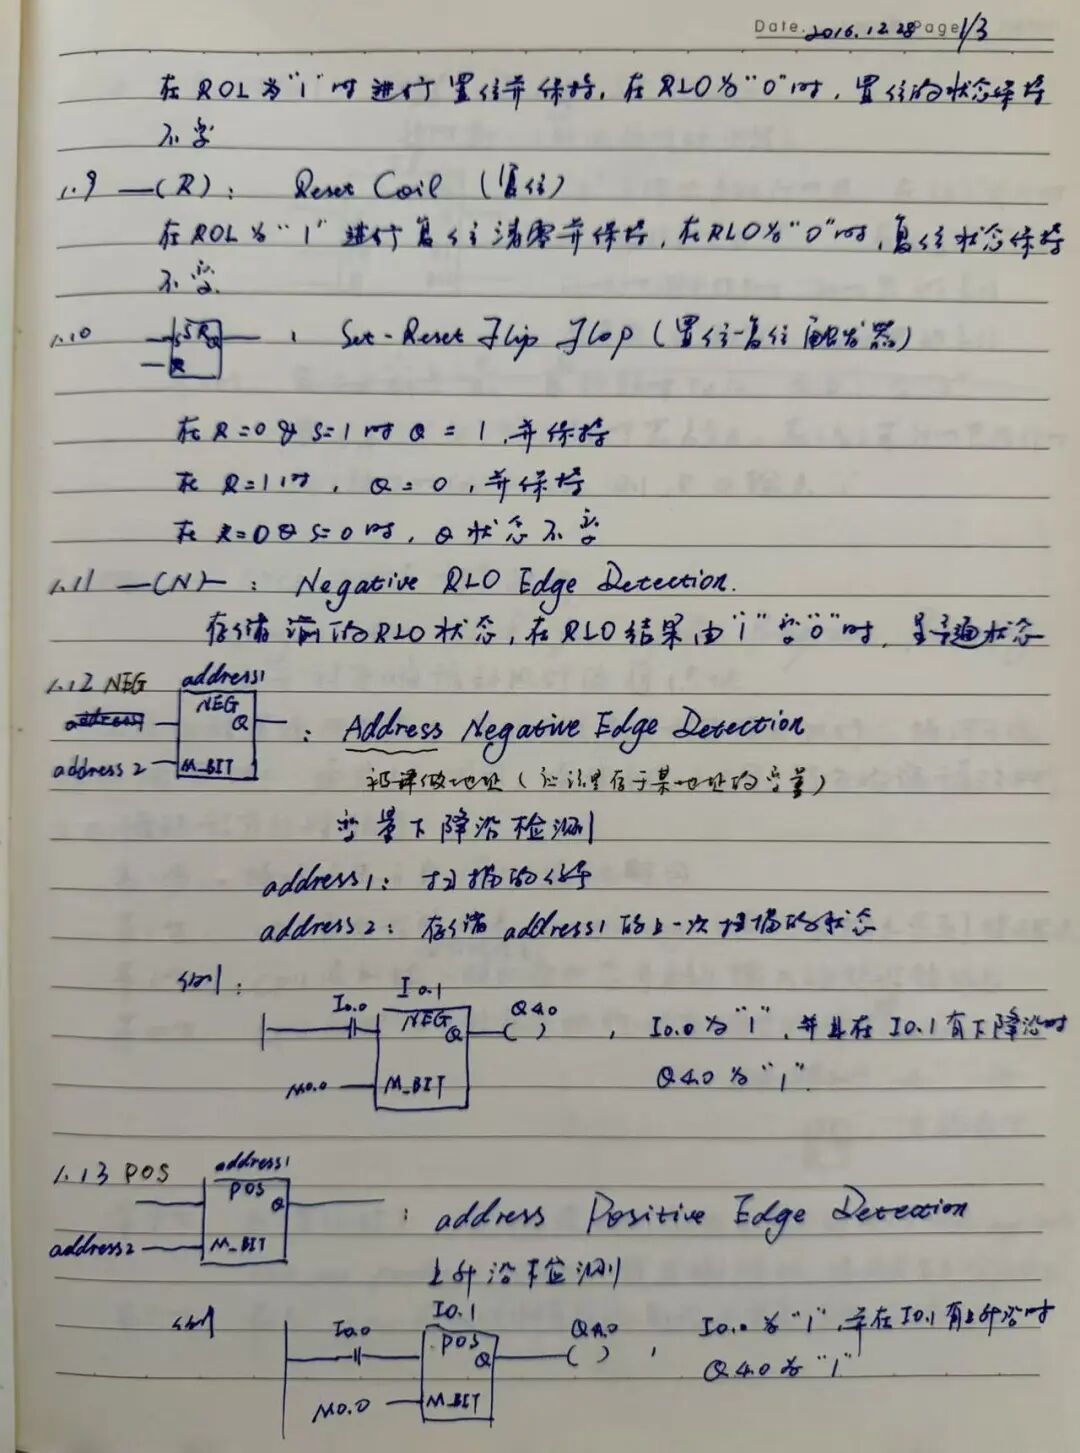 Date. 2016.12.28 Page 1/3
在ROL为"1"时进行置位并保持,在RLO为"0"时,置位的状态保持
不变
1.9 —(R): Reset Coil (复位)
在ROL为"1"进行复位清零并保持,在RLO为"0"时,复位状态保持
不变
1.10 SR S Q R : Set-Reset Flip Flop (置位-复位触发器)
在R=0 & S=1时 Q=1,并保持
在R=1时,Q=0,并保持
在R=0 & S=0时,Q状态不变
1.11 —(N)— : Negative RLO Edge Detection.
存储前的RLO状态,在RLO结果由"1"变"0"时,呈导通状态
1.12 NEG address1
NEG Q
address2 M_BIT : Address Negative Edge Detection
被译做地址(应该是存于某地址的变量)
变量下降沿检测
address1: 扫描的信号
address2: 存储address1的上一次扫描的状态
例:
I0.0 I0.1 NEG Q Q4.0 , I0.0为"1",并且在I0.1有下降沿时
M0.0 M_BIT Q4.0为"1"
1.13 POS address1
POS Q
address2 M_BIT : address Positive Edge Detection
上升沿检测
例 I0.0 I0.1 POS Q Q4.0 , I0.0为"1",并在I0.1有上升沿时
M0.0 M_BIT Q4.0为"1"